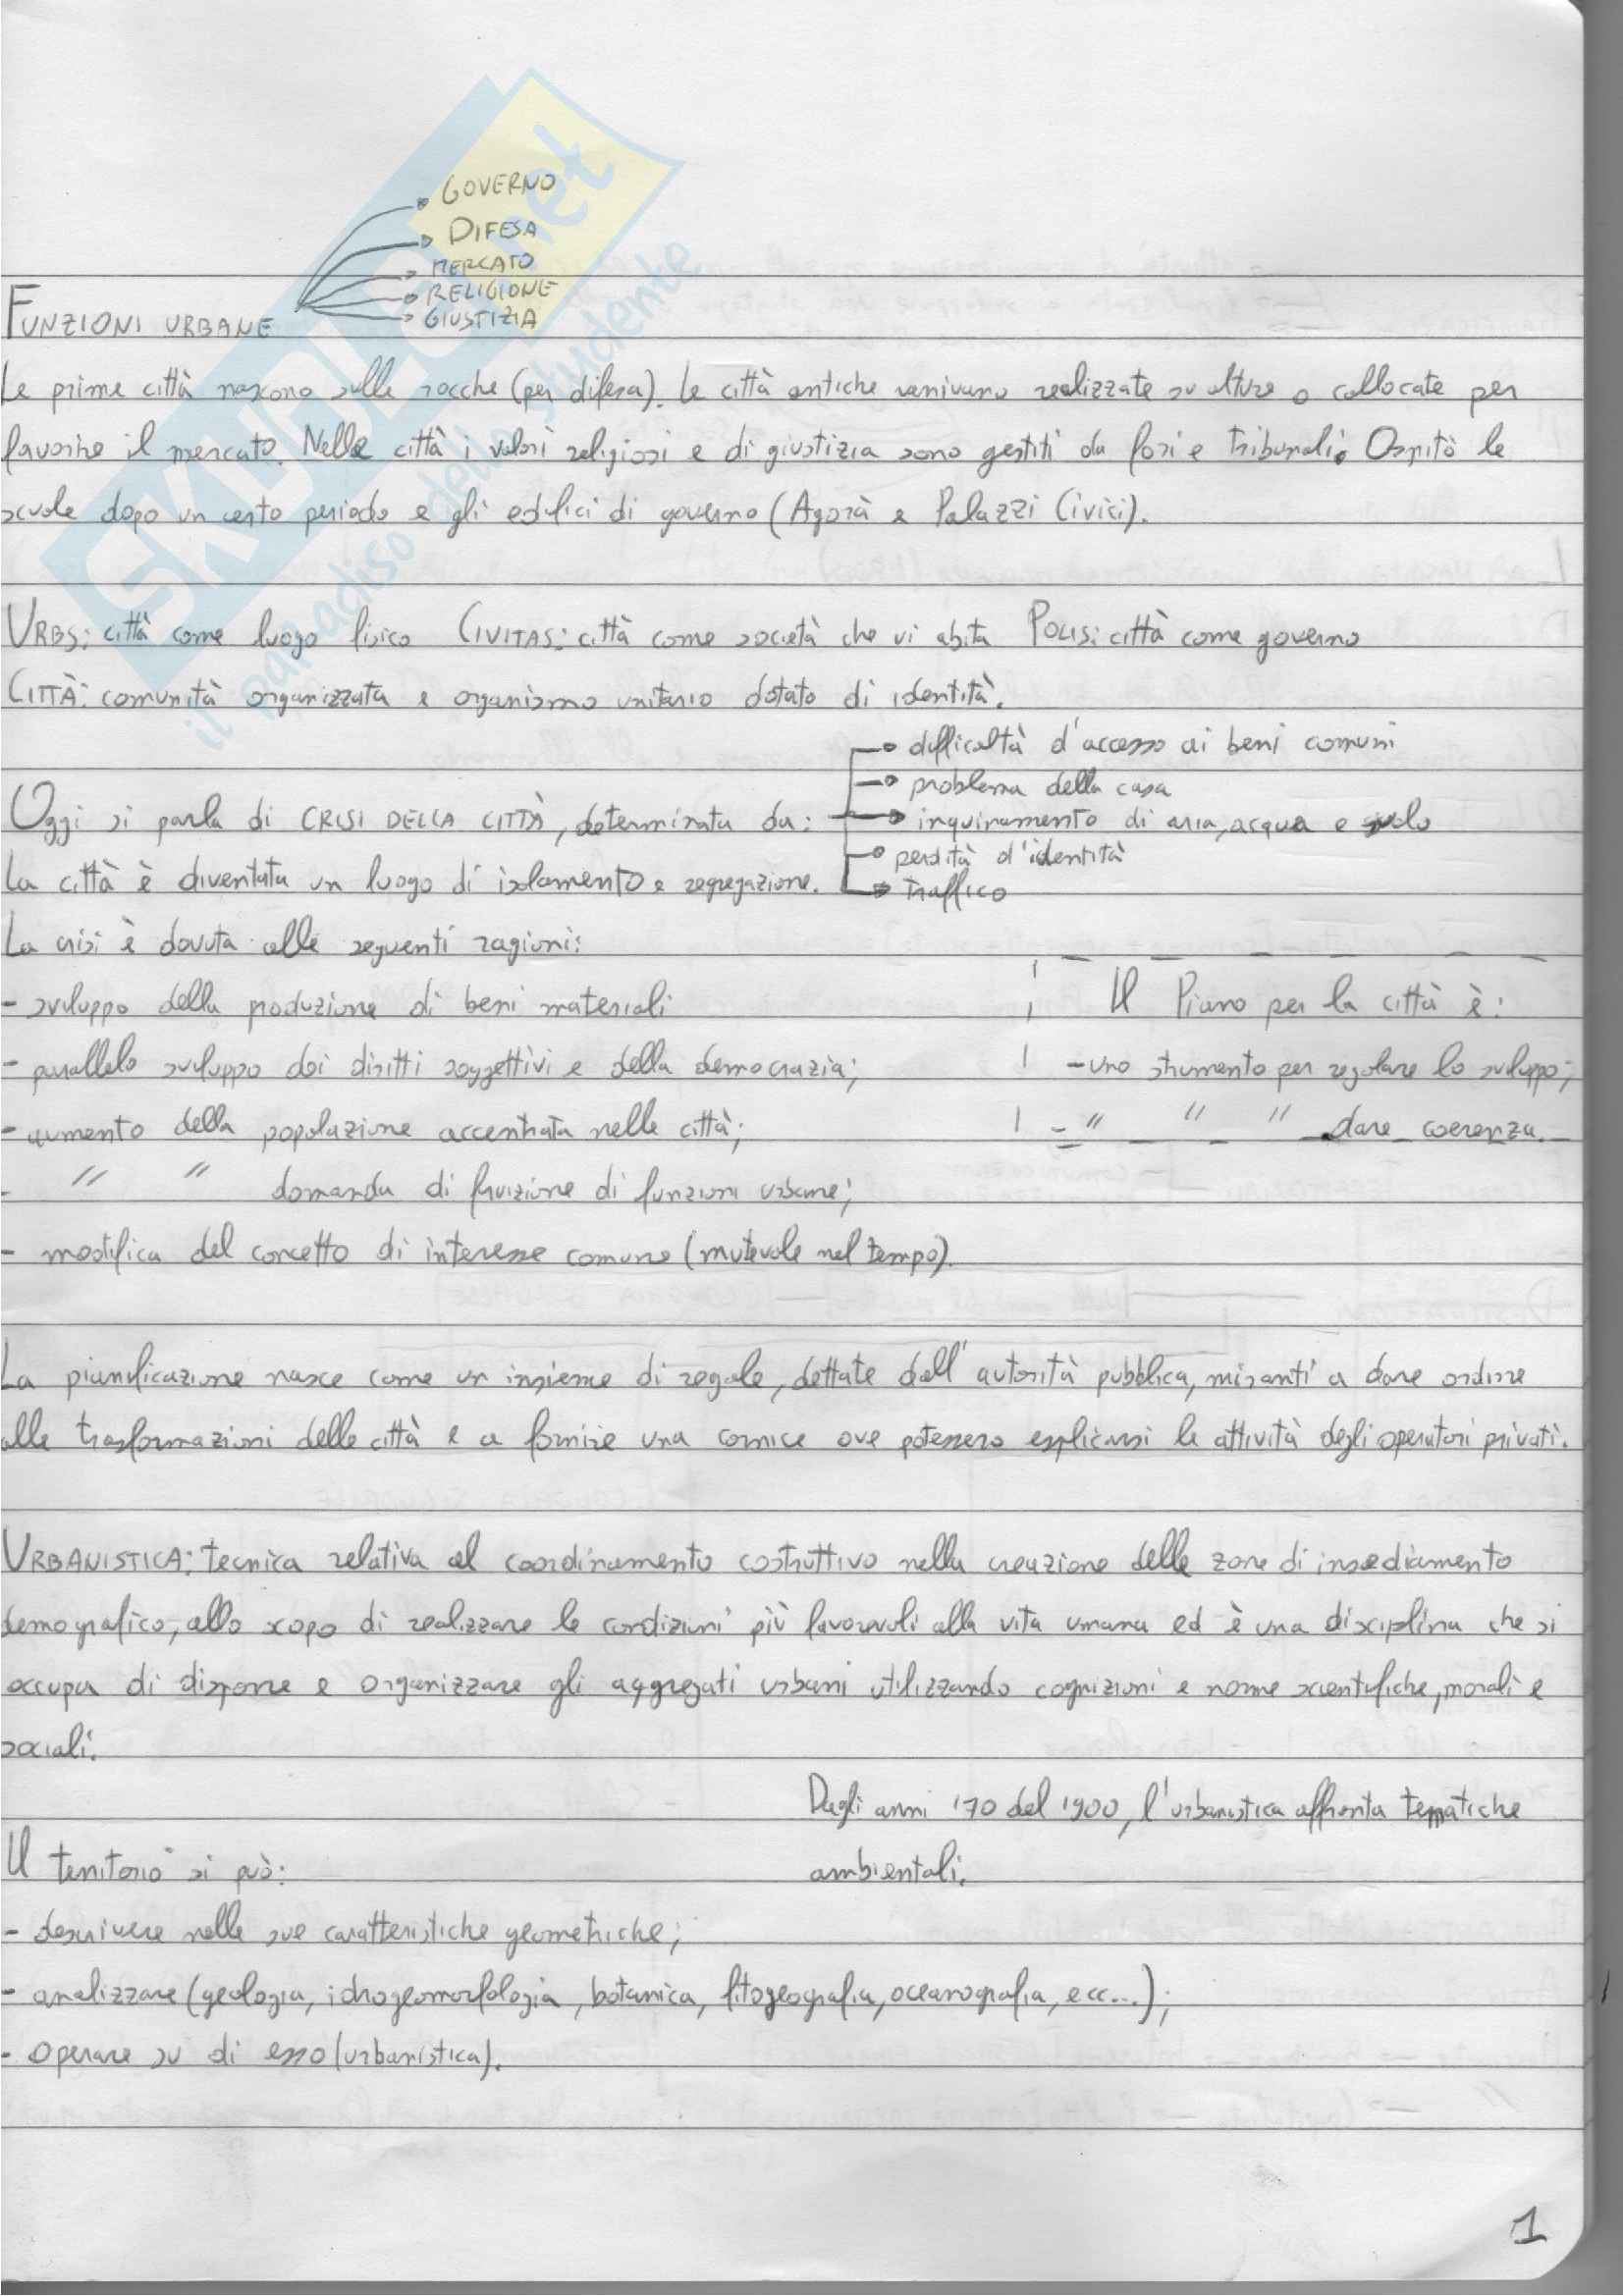 GOVERNO
DIFESA
MERCATO
RELIGIONE
GIUSTIZIA
FUNZIONI URBANE
Le prime città nascono sulle rocche (per difesa). Le città antiche venivano realizzate su alture o collocate per
favorire il mercato. Nelle città i valori religiosi e di giustizia sono gestiti da fori e tribunali. Ospitò le
scuole dopo un certo periodo e gli edifici di governo (Agorà e Palazzi Civici).
URBS: città come luogo fisico CIVITAS: città come società che vi abita POLIS: città come governo
CITTÀ: comunità organizzata e organismo unitario dotato di identità.
difficoltà d'accesso ai beni comuni
problema della casa
Oggi si parla di CRISI DELLA CITTÀ, determinata da: inquinamento di aria, acqua e suolo
perdità d'identità
La città è diventata un luogo di isolamento e segregazione. traffico
La crisi è dovuta alle seguenti ragioni:
- sviluppo della produzione di beni materiali
- parallelo sviluppo dei diritti soggettivi e della democrazia;
- aumento della popolazione accentrata nelle città;
- " " domanda di fruizione di funzioni urbane;
- modifica del concetto di interesse comune (mutevole nel tempo).
Il Piano per la città è:
- uno strumento per regolare lo sviluppo;
- " " " dare coerenza.
La pianificazione nasce come un insieme di regole, dettate dall'autorità pubblica, miranti a dare ordine
alle trasformazioni delle città e a fornire una cornice ove potessero esplicarsi le attività degli operatori privati.
URBANISTICA: tecnica relativa al coordinamento costruttivo nella creazione delle zone di insediamento
demografico, allo scopo di realizzare le condizioni più favorevoli alla vita umana ed è una disciplina che si
occupa di disporre e organizzare gli aggregati urbani utilizzando cognizioni e norme scientifiche, morali e
sociali.
Dagli anni '70 del 1900, l'urbanistica affronta tematiche
ambientali.
Il territorio si può:
- descrivere nelle sue caratteristiche geometriche;
- analizzare (geologia, idrogeomorfologia, botanica, fitogeografia, oceanografia, ecc...);
- operare su di esso (urbanistica).
1
SKUOLA.net
il paradiso dello studente